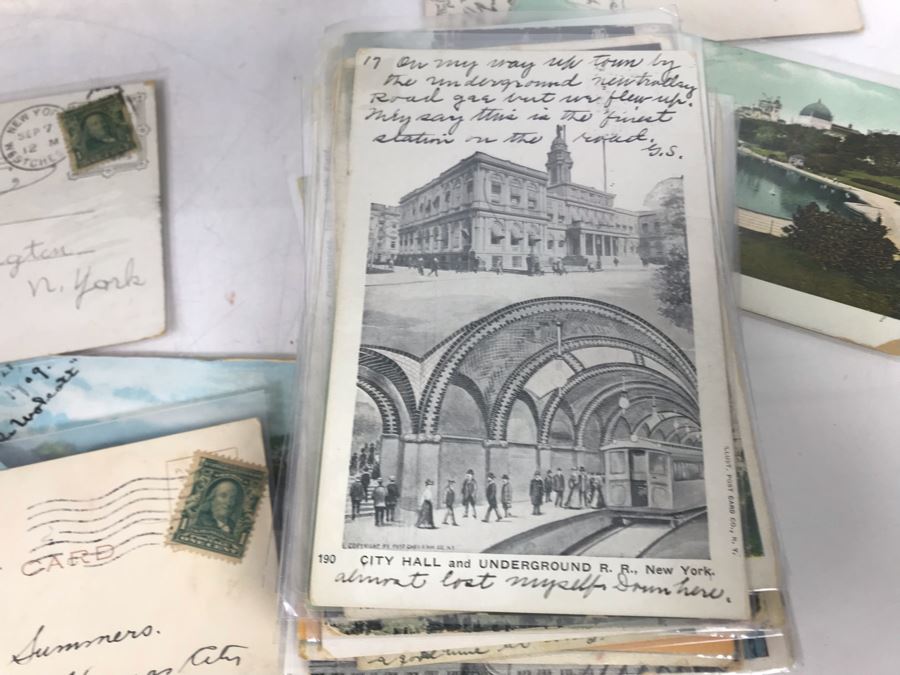 17 On my way up town by
the underground new trolley
Road gee but we flew up.
They say this is the finest
station on the road.
G.S.
COPYRIGHT BY POST CARD CO. N.Y.
190 CITY HALL and UNDERGROUND R. R., New York.
almost lost myself Down here.
POST CARD CO., N. Y.
NEW YO
SEP 7
12 M
WESTCHES
gton
N. York
1909.
Wolcott
CARD
Summers.
City